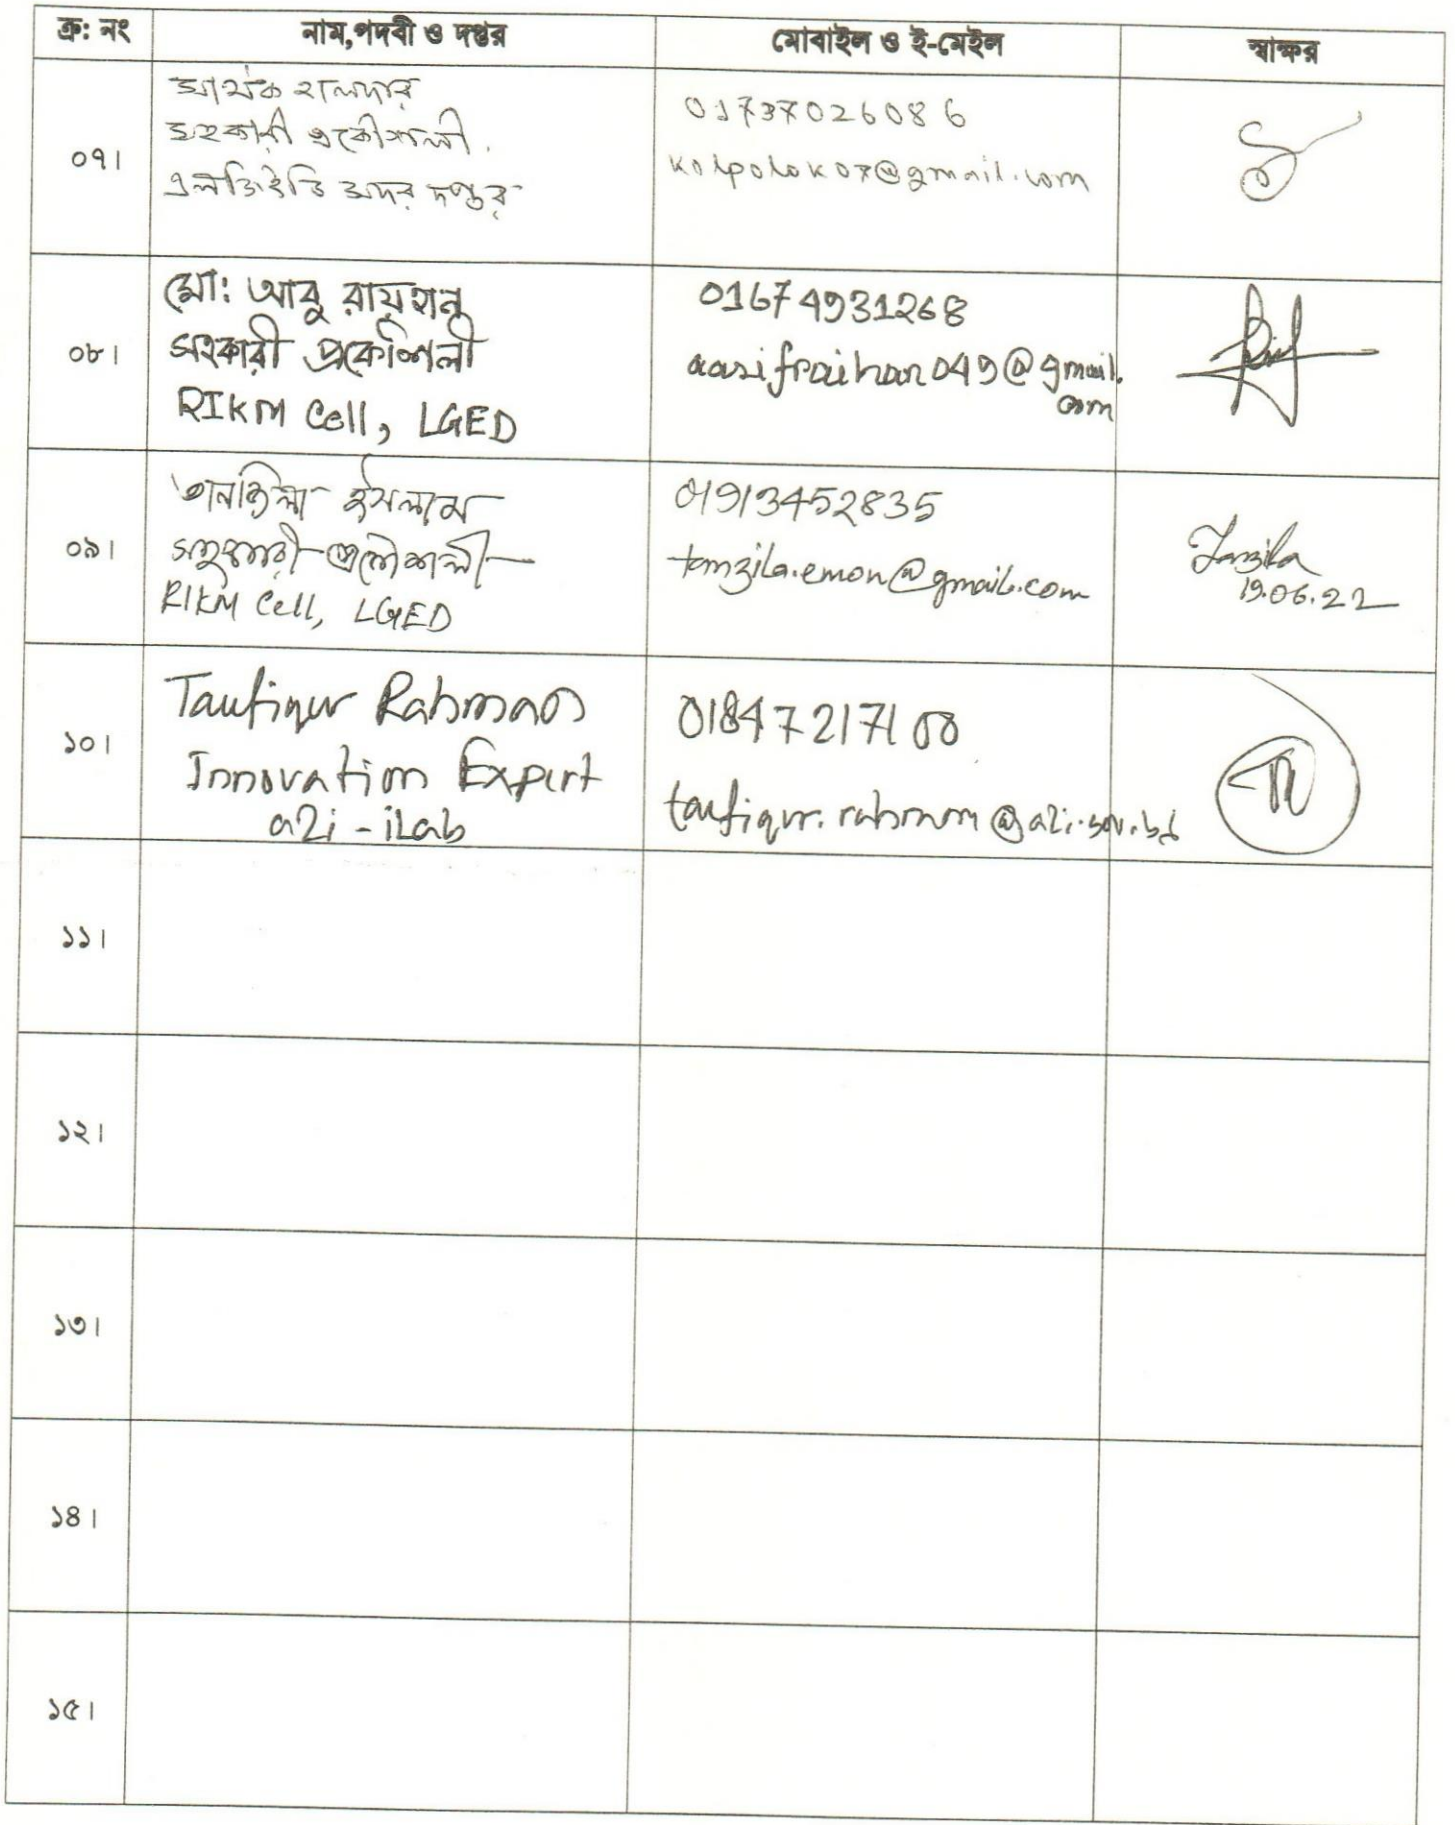 ক্র: নং নাম,পদবী ও দপ্তর মোবাইল ও ই-মেইল স্বাক্ষর
০৭। সার্থক হালদার
সহকারী প্রকৌশলী.
এলজিইডি সদর দপ্তর
01737026086
kolpolok07@gmail.com
০৮। মো: আবু রায়হান
সহকারী প্রকৌশলী
RIKM Cell, LGED
01674931268
aasifraihan049@gmail.
com
০৯। তানজিলা ইসলাম
সহকারী প্রকৌশলী
RIKM Cell, LGED
01913452835
tanzila.emon@gmail.com
Tanzila
19.06.22
১০। Taufiqur Rahman
Innovation Expert
a2i - iLab
01847217100
taufiqur.rahman@a2i.gov.bd
১১।
১২।
১৩।
১৪।
১৫।